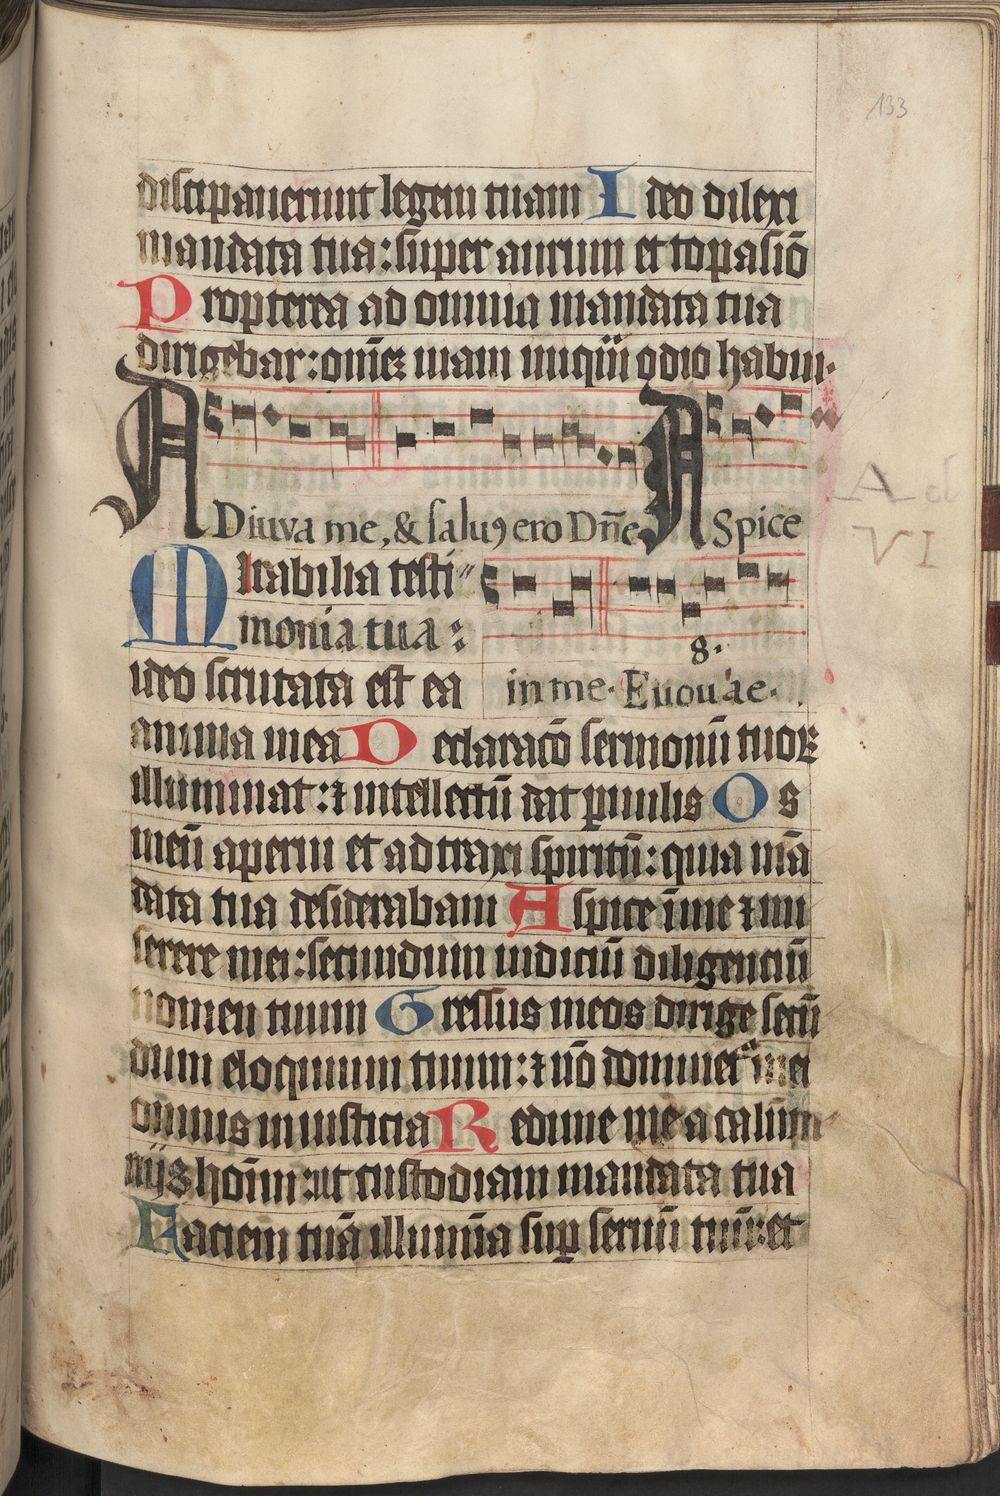 133
discipauerunt legem tuam Ideo dilexi
mandata tua: super aurum et topasiō
Propterea ad omnia mandata tua
dirigebar: om̄eꝫ uiam iniquā odio habui.
ADiuva me, & saluꝯ ero Dn̄e ASpice
Ad
VI
Mirabilia testi"
monia tua:
8.
in me. Euouae.
ideo scrutata est ea
anima mea Declaratō sermonū tuoꝝ
illuminat: ⁊ intellectū dat ꝑuulis Os
meū aperui et adtraxi spiritū: quia mā
data tua desiderabam Aspice ī me ⁊ mi
serere mei: secundum iudiciū diligenciū
nomen tuum Gressus meos dirige secū
dum eloquium tuum: ⁊ nō dominetᵘʳ mei
omnis iniusticia Redime me a calūm
niis hoīm: ut custodiam mandata tua
Faciem tuā illumīa suꝑ seruū tuū: et